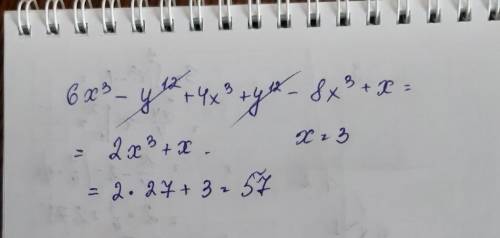 6x³ - y¹² + 4x³ + y¹² - 8x³ + x =
= 2x³ + x. x = 3
= 2 · 27 + 3 = 57